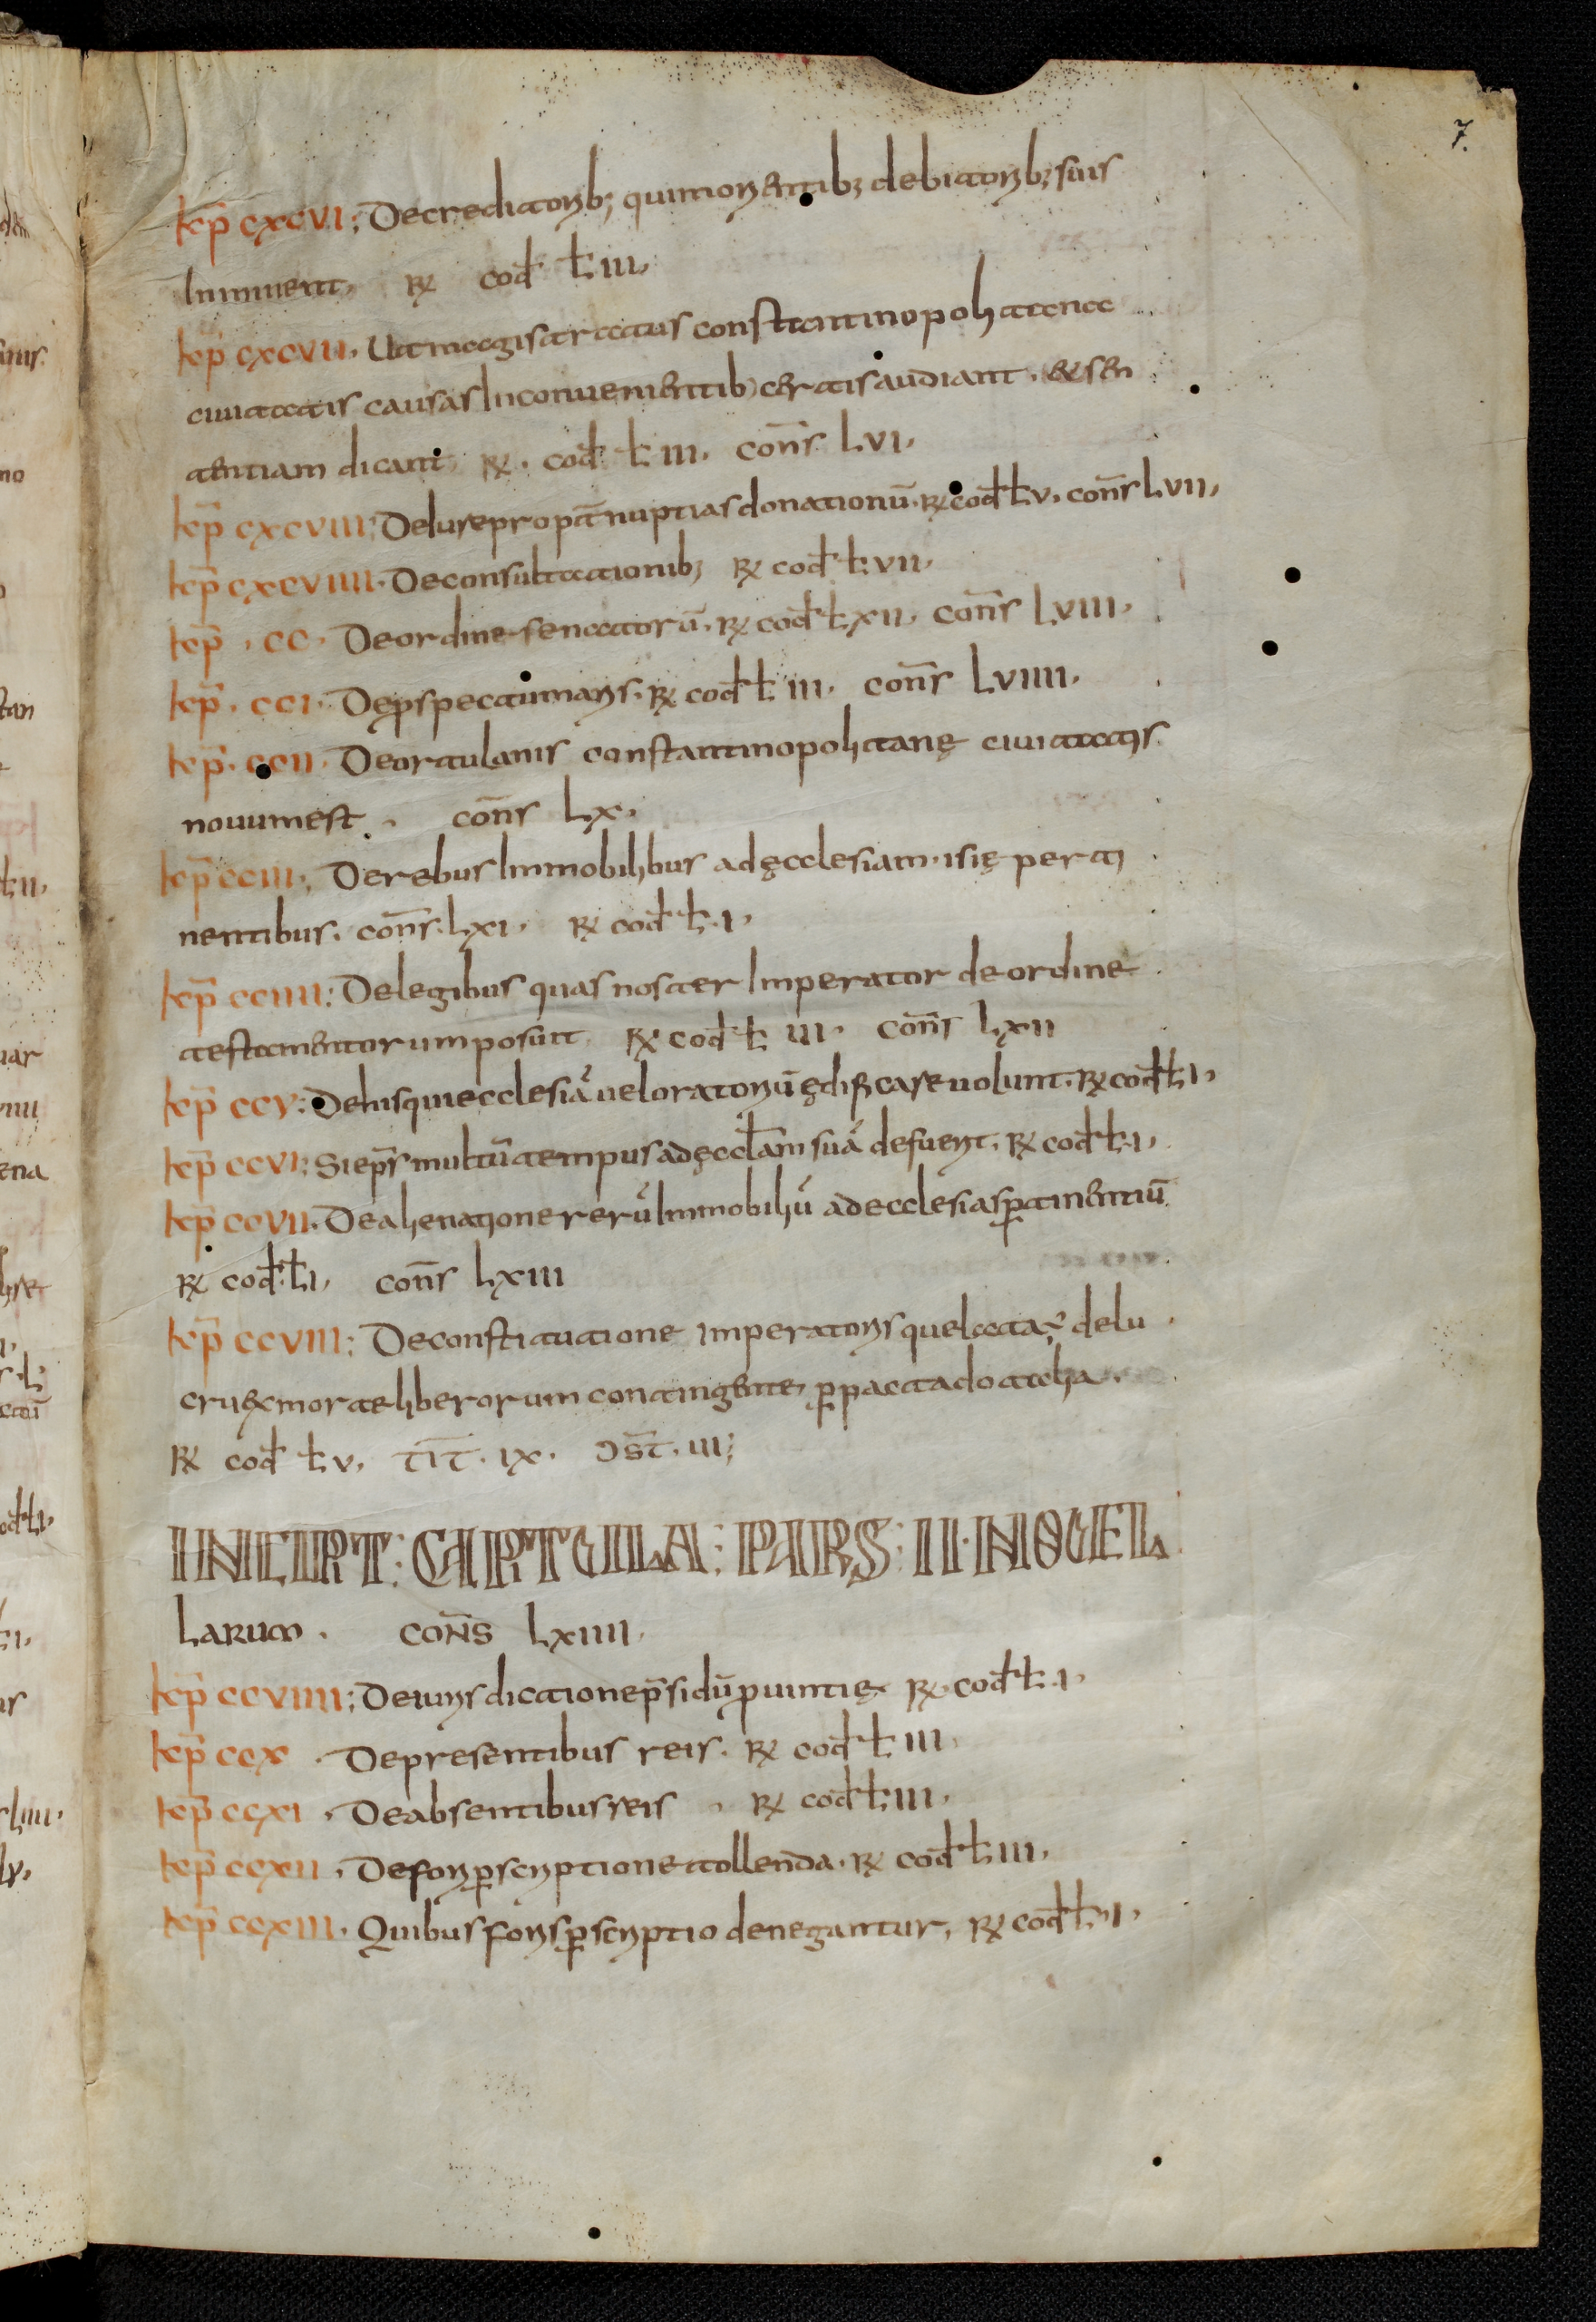 7.
kap̄ cxcvi; De creditorib; qui morientib; debitorib; suis
Inminent, R cod ł iii,
kap̄ cxcvii. Ut magistratus constantinopolitanae
ciuitatis causas Inconuenientib; certis audiant. & sen
tentiam dicant, R. cod ł iii. con̄s Lvi,
kap̄ cxcviii; De Iure propt̄ nuptias donationū. R cod ł v. con̄s Lvii,
kap̄ cxcviiii. De consultationib; R cod ł vii,
kap̄ . cc. De ordine senatorū. R cod ł xii, con̄s Lviii,
kap̄. cci. De pspectiuis maris. R cod ł iii. con̄s Lviiii.
kap̄. ccii. De ortulanis constantinopolitanę ciuitatis.
nouum est . con̄s Lx.
kap̄ cciii; De rebus Immobilibus ad ęcclesiam. isię perti
nentibus. con̄s. Lxi. R cod ł. i.
kap̄ cciiii; De legibus quas noster Imperator de ordine
testamentorum posuit. R cod ł iii. con̄s Lxii
kap̄ ccv; De his qui ecclesiā uel oratoriū ędificare uolunt. R cod ł i,
kap̄ ccvi; Si ep̄s multū tempus ad ęccłam suā defuerit. R cod ł. i,
kap̄ ccvii. De alienatione rerū Immobiliū ad ecclesias ptinentiū
R cod ł i, con̄s Lxiii
kap̄ ccviii; De constitutione imperatoris que lata ÷ de lu
cru ex morte liberorum contingente, p pacta dotalia.
R cod ł v, TIT. ix. ɔsT. iii;
INCIPT: CAPTULA: PARS: II. NOUEL
LARUM. CON̄S Lxiiii.
kap̄ ccviiii; De iurisdictione p̄sidū puintię R. cod ł. i,
kap̄ ccx . De presentibus reis. R cod ł iii.
kap̄ ccxi . De absentibus reis . R cod ł iii.
kap̄ ccxii . De fori pscriptione tollenda. R cod ł iii.
kap̄ ccxiii. Quibus foris pscriptio denegantur, R cod ł. i.